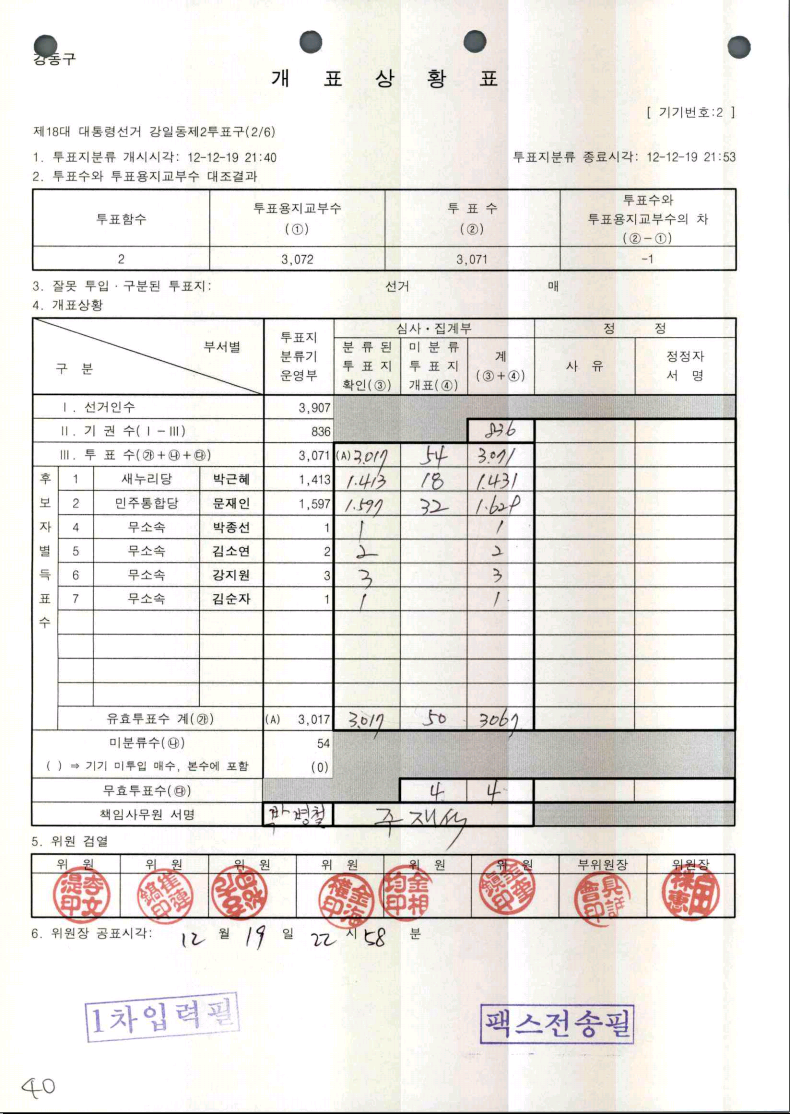 강동구
개 표 상 황 표
[ 기기번호:2 ]
제18대 대통령선거 강일동제2투표구(2/6)
1. 투표지분류 개시시각: 12-12-19 21:40 투표지분류 종료시각: 12-12-19 21:53
2. 투표수와 투표용지교부수 대조결과
투표함수 투표용지교부수 (①) 투 표 수 (②) 투표수와 투표용지교부수의 차 (②-①)
2 3,072 3,071 -1
3. 잘못 투입·구분된 투표지: 선거 매
4. 개표상황
부서별 구 분 투표지 분류기 운영부 심사·집계부 정 정
분 류 된 투 표 지 확인(③) 미 분 류 투 표 지 개표(④) 계 (③+④) 사 유 정정자 서 명
Ⅰ. 선거인수 3,907
Ⅱ. 기 권 수(Ⅰ-Ⅲ) 836 836
Ⅲ. 투 표 수(㉮+㉯+㉰) 3,071 (A) 3,017 54 3.071
후보자별득표수
1 새누리당 박근혜 1,413 1.413 18 1.431
2 민주통합당 문재인 1,597 1.597 32 1.629
4 무소속 박종선 1 1 1
5 무소속 김소연 2 2 2
6 무소속 강지원 3 3 3
7 무소속 김순자 1 1 1
유효투표수 계(㉮) (A) 3,017 3.017 50 3067
미분류수(㉯) 54
( ) ⇒ 기기 미투입 매수, 본수에 포함 (0)
무효투표수(㉰) 4 4
책임사무원 서명
5. 위원 검열
위 원 위 원 위 원 위 원 위 원 위 원 부위원장 위원장
6. 위원장 공표시각: 12 월 19 일 22 시 58 분
1차입력필
팩스전송필
40